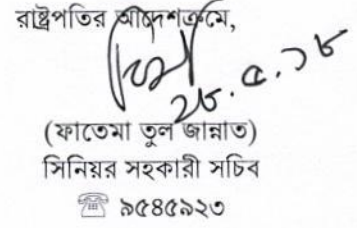 রাষ্ট্রপতির আদেশক্রমে,
২৮.৫.১৮
(ফাতেমা তুল জান্নাত)
সিনিয়র সহকারী সচিব
☎ ৯৫৪৫৯২৩